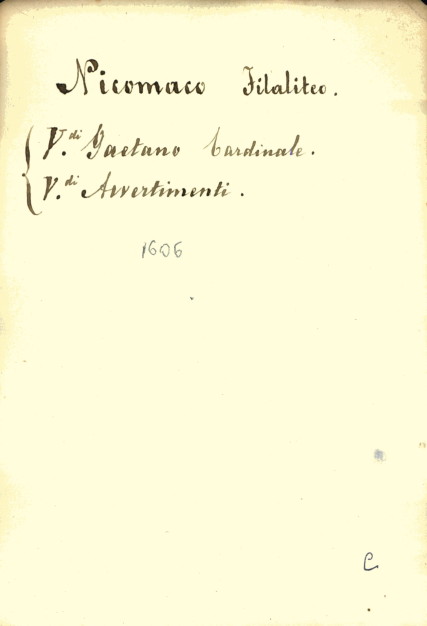 Nicomaco Filaliteo.
V.di Gaetano Cardinale.
V.di Avvertimenti.
1606
C